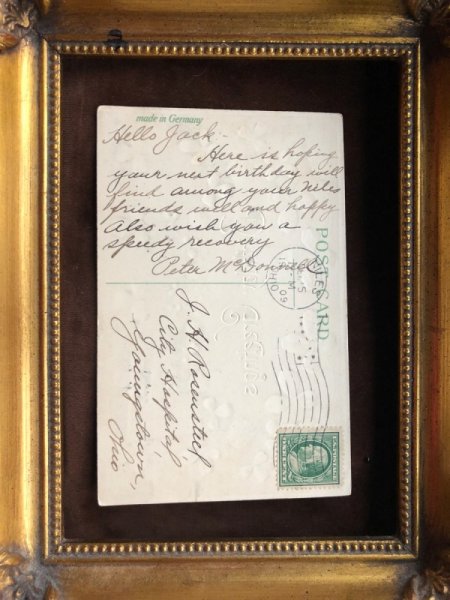 made in Germany
Hello Jack -
Here is hoping
your next birthday will
find among your Niles
friends well and happy
Also wish you a
speedy recovery
Peter McDonnell
POSTCARD
OHIO
J. H. Rosensteel
City Hospital
Youngstown,
Ohio